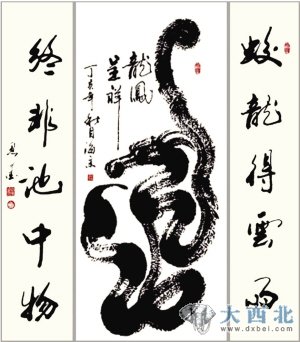 蛟龍得雲雨
龍鳳
呈祥
丁亥年秋月海
終非池中物
大西北
www.dxbei.com